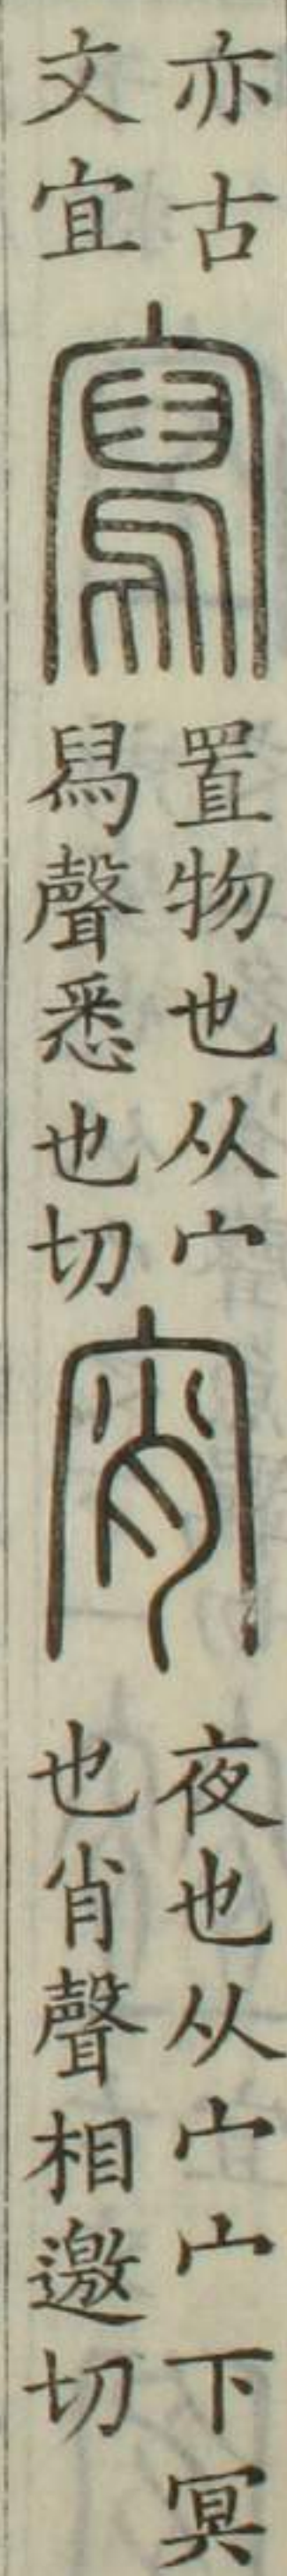 亦古
文宜
寫
置物也从宀
舄聲悉也切
宵
夜也从宀宀下冥
也肖聲相邀切